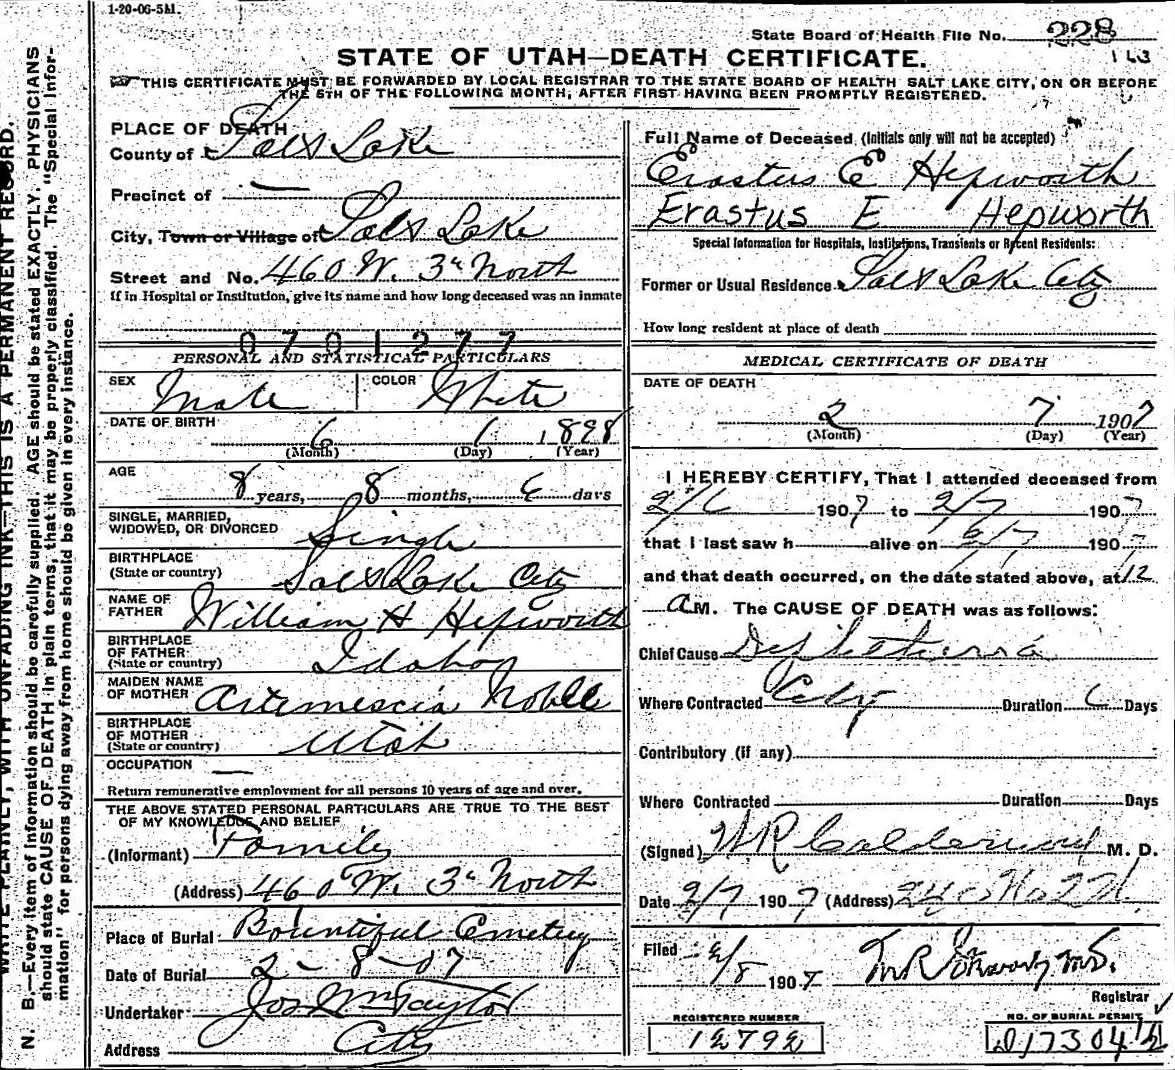 1-20-06-5M.
State Board of Health File No. 228
163
STATE OF UTAH—DEATH CERTIFICATE.
THIS CERTIFICATE MUST BE FORWARDED BY LOCAL REGISTRAR TO THE STATE BOARD OF HEALTH SALT LAKE CITY, ON OR BEFORE
THE 5TH OF THE FOLLOWING MONTH, AFTER FIRST HAVING BEEN PROMPTLY REGISTERED.
WRITE PLAINLY, WITH UNFADING INK—THIS IS A PERMANENT RECORD.
N. B.—Every item of information should be carefully supplied. AGE should be stated EXACTLY, PHYSICIANS
should state CAUSE OF DEATH in plain terms, that it may be properly classified. The "Special Infor-
mation" for persons dying away from home should be given in every instance.
PLACE OF DEATH
County of Salt Lake
Precinct of —
City, Town or Village of Salt Lake
Street and No. 460 W. 3d North
If in Hospital or Institution, give its name and how long deceased was an inmate
0701277
PERSONAL AND STATISTICAL PARTICULARS
SEX Male COLOR White
DATE OF BIRTH 6 1 1898
(Month) (Day) (Year)
AGE
8 years, 8 months, 6 days
SINGLE, MARRIED,
WIDOWED, OR DIVORCED Single
BIRTHPLACE
(State or country) Salt Lake City
NAME OF
FATHER William H Hepworth
BIRTHPLACE
OF FATHER
(State or country) Idaho
MAIDEN NAME
OF MOTHER Artemescia Noble
BIRTHPLACE
OF MOTHER
(State or country) Utah
OCCUPATION —
Return remunerative employment for all persons 10 years of age and over.
THE ABOVE STATED PERSONAL PARTICULARS ARE TRUE TO THE BEST
OF MY KNOWLEDGE AND BELIEF
(Informant) Family
(Address) 460 W. 3d North
Place of Burial Bountiful Cemetery
Date of Burial 2-8-07
Undertaker Jos Wm Taylor
Address City
Full Name of Deceased (Initials only will not be accepted)
Erastus E Hepworth
Erastus E Hepworth
Special Information for Hospitals, Institutions, Transients or Recent Residents:
Former or Usual Residence Salt Lake City
How long resident at place of death
MEDICAL CERTIFICATE OF DEATH
DATE OF DEATH
2 7 1907
(Month) (Day) (Year)
I HEREBY CERTIFY, That I attended deceased from
2/6 1907 to 2/7 1907
that I last saw h alive on 2/7 1907
and that death occurred, on the date stated above, at 12
a M. The CAUSE OF DEATH was as follows:
Chief Cause Diphtheria
Where Contracted City Duration 6 Days
Contributory (if any)
Where Contracted Duration Days
(Signed) W R Calderwood M. D.
Date 2/7 1907 (Address)
Filed 2/8 1907
Registrar
REGISTERED NUMBER
12792
NO. OF BURIAL PERMIT
D17304½